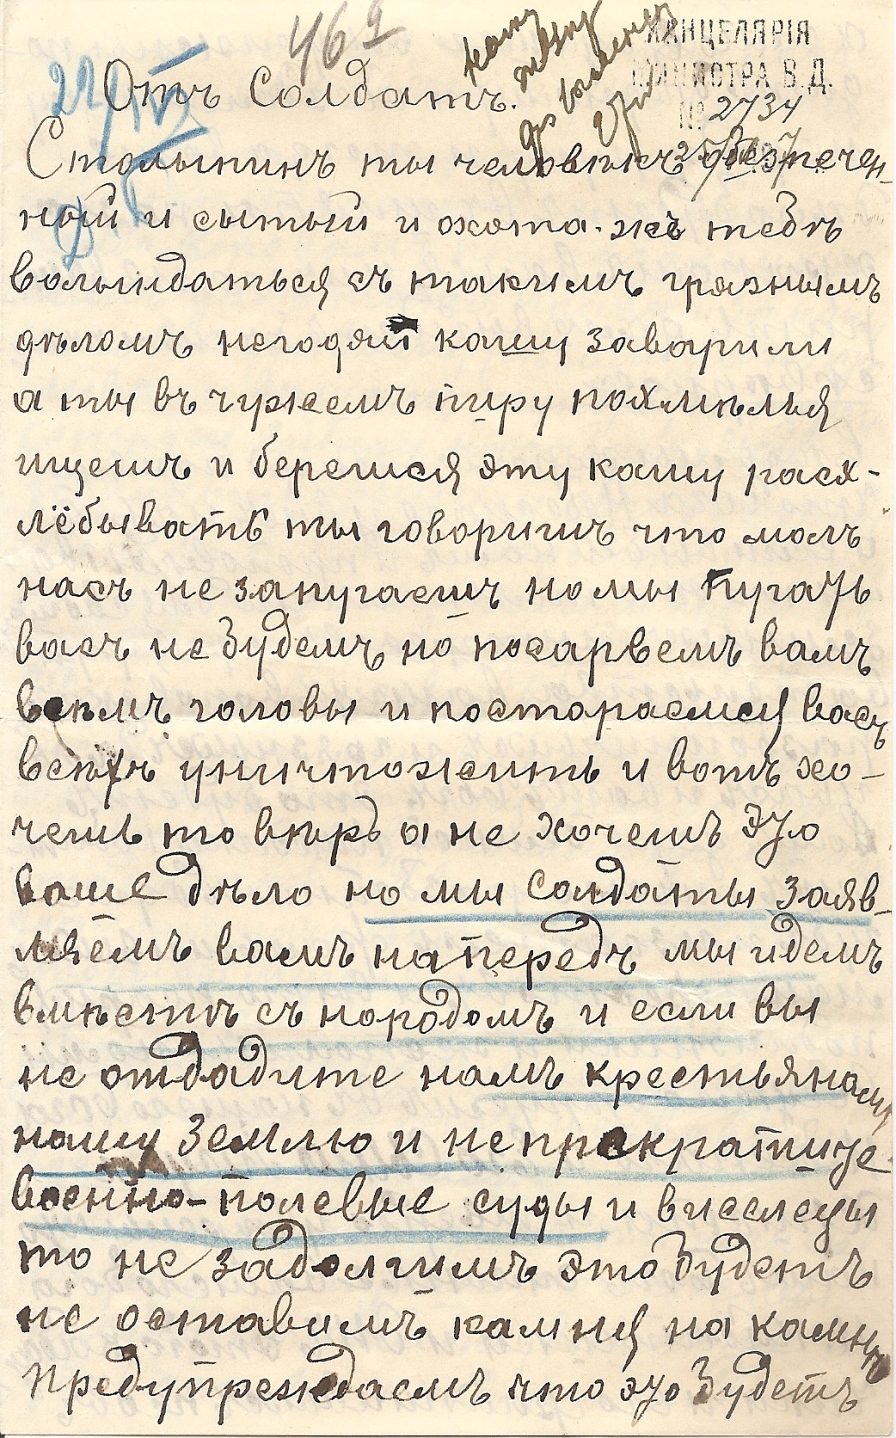 469
КАНЦЕЛЯРІЯ
МИНИСТРА В.Д.
№ 2734
Отъ Солдатъ.
Столыпинъ ты человѣкъ обезпечен-
ный и сытый и охота-же тебѣ
волындаться съ такимъ грязнымъ
дѣломъ негодяи кашу заварили
а ты въ чужемъ пиру похмѣлья
ищешъ и берешся эту кашу расх-
лёбывать ты говоришъ что молъ
насъ не запугаешъ но мы пугать
васъ не будемъ но посарвемъ вамъ
всѣмъ головы и постораемся васъ
всѣхъ уничтожить и вотъ хо-
чешь то вѣрь а не хочешъ это
ваше дѣло но мы солдаты заяв-
ляемъ вамъ напередъ мы идемъ
вмѣстѣ съ народомъ и если вы
не отдадите намъ крестьянамъ
нашу землю и непрекратите
военно-полевые суды и виселецы
то не задолгимъ это будетъ
не оставимъ камня на камню
предупреждаемъ что это будетъ